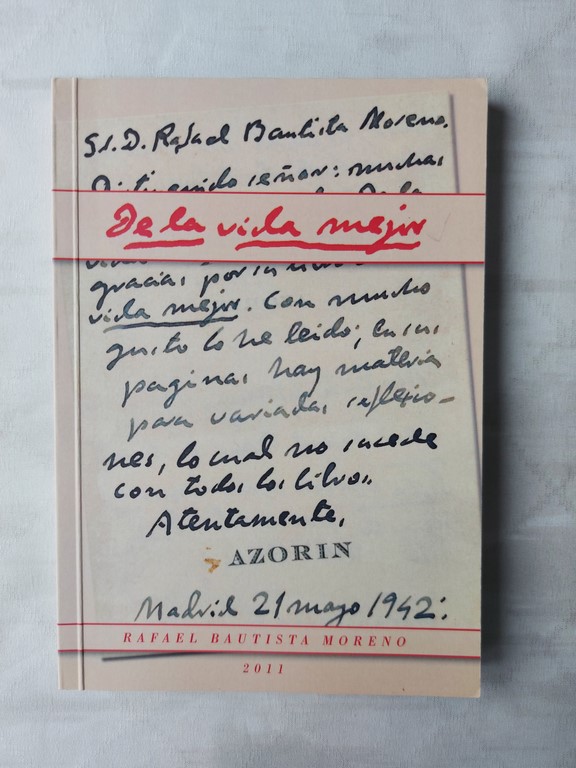 Sr. D. Rafael Bautista Moreno.
Distinguido señor: muchas
De la vida mejor
gracias por su
vida mejor. Con mucho
gusto lo he leido; en sus
paginas hay materia
para variadas reflexio-
nes, lo cual no sucede
con todos los libros.
Atentamente,
AZORIN
Madrid 21 mayo 1942.
RAFAEL BAUTISTA MORENO
2011